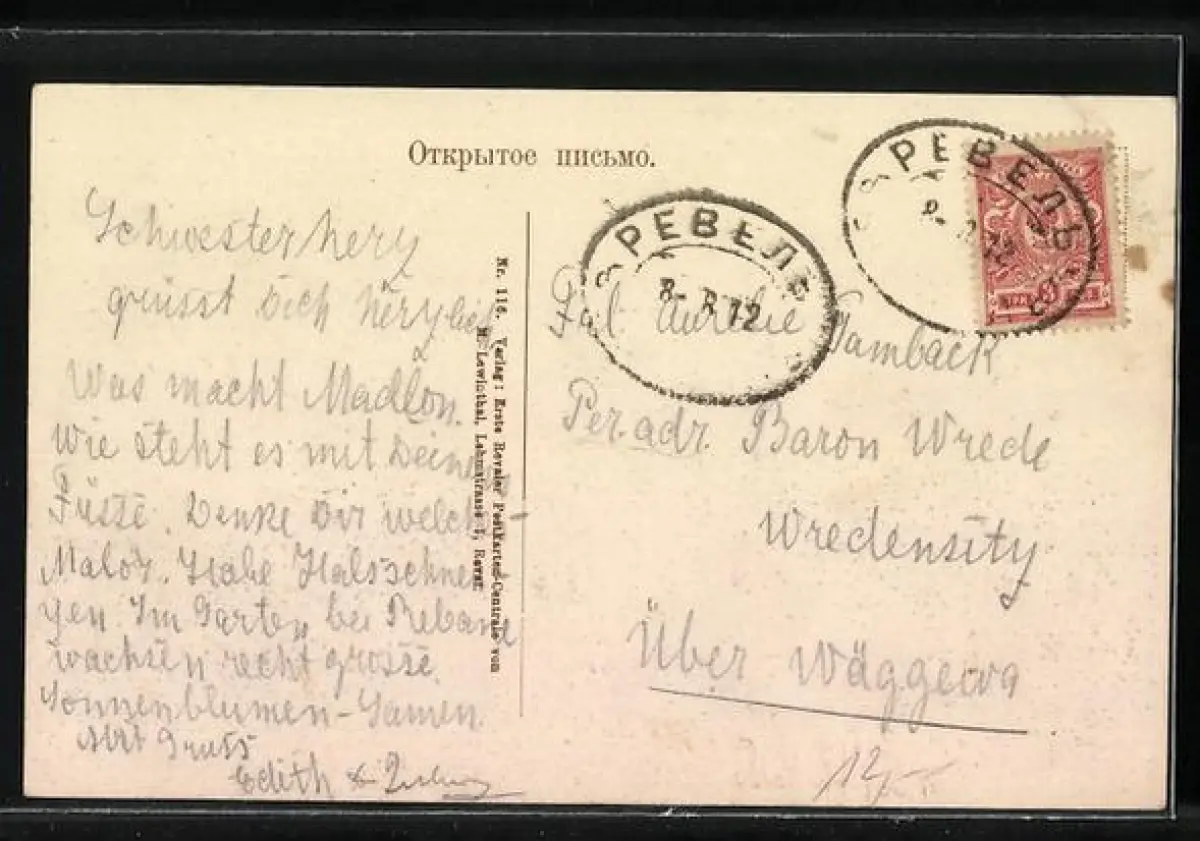 Открытое письмо.
РЕВЕЛЬ
8-8 12
РЕВЕЛЬ
Schwesterherz
grüsst Dich herzlich
Was macht Madlon.
Wie steht es mit Deinen
Füsse. Denke Dir welch
Malör. Habe Halsschmer
zen. Im Garten bei Rebane
wachsen recht grosse
Sonnenblumen-Samen.
Mit Gruss
Edith
Nr. 116. Verlag: Erste Revaler Postkarten-Centrale von
Lewinthal, Lehmstrasse Reval.
Frl. Aurelie Tamback
Per. adr. Baron Wrede
Wredensity
Über Wäggewa
12,-